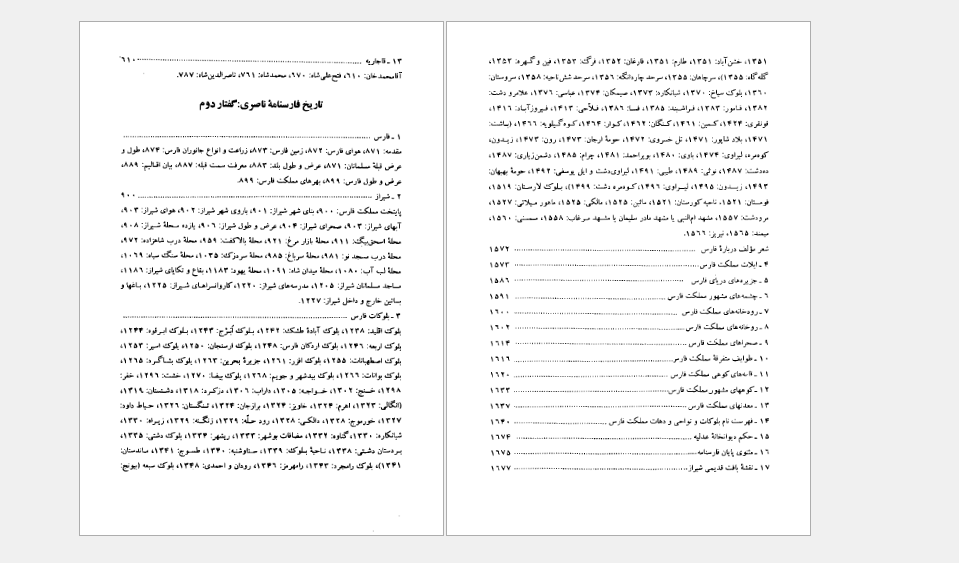 ۱۳ ـ قاجاریه ........ ۶۱۰
آقامحمدخان: ۶۱۰، فتح‌علی‌شاه: ۶۷۰، محمدشاه: ۷۶۱، ناصرالدین‌شاه: ۷۸۷.
تاریخ فارسنامهٔ ناصری: گفتار دوم
۱ ـ فارس ........
مقدمه: ۸۷۱، هوای فارس: ۸۷۲، زمین فارس: ۸۷۳، زراعت و انواع جانوران فارس: ۸۷۴، طول و
عرض قبلهٔ مسلمانان: ۸۷۱، عرض و طول بلد: ۸۸۳، معرفت سمت قبله: ۸۸۷، بیان اقالیم: ۸۸۹،
عرض و طول فارس: ۸۹۹، بهرهای مملکت فارس: ۸۹۹.
۲ ـ شیراز ........ ۹۰۰
پایتخت مملکت فارس: ۹۰۰، بنای شهر شیراز: ۹۰۱، باروی شهر شیراز: ۹۰۲، هوای شیراز: ۹۰۳،
آبهای شیراز: ۹۰۳، صحرای شیراز: ۹۰۴، عرض و طول شیراز: ۹۰۶، یازده محلهٔ شیراز: ۹۰۸،
محلهٔ اسحق‌بیگ: ۹۱۱، محلهٔ بازار مرغ: ۹۲۱، محلهٔ بالاکفت: ۹۵۹، محلهٔ درب شاهزاده: ۹۷۲،
محلهٔ درب مسجد نو: ۹۸۱، محلهٔ سرباغ: ۹۸۵، محلهٔ سردزک: ۱۰۳۵، محلهٔ سنگ سیاه: ۱۰۶۹،
محلهٔ لب آب: ۱۰۸۰، محلهٔ میدان شاه: ۱۰۹۱، محلهٔ یهود: ۱۱۸۳، بقاع و تکایای شیراز: ۱۱۸۶،
مساجد مسلمانان شیراز: ۱۲۰۵، مدرسه‌های شیراز: ۱۲۲۰، کاروانسراهای شیراز: ۱۲۲۵، باغها و
بساتین خارج و داخل شیراز: ۱۲۲۷.
۳ ـ بلوکات فارس ........
بلوک اقلید: ۱۲۳۸، بلوک آبادهٔ طشک: ۱۲۴۲، بلوک اَبَرْج: ۱۲۴۳، بلوک ابرقوه: ۱۲۴۴،
بلوک اربعه: ۱۲۴۶، بلوک اردکان فارس: ۱۲۴۸، بلوک ارسنجان: ۱۲۵۰، بلوک اسیر: ۱۲۵۳،
بلوک اصطهبانات: ۱۲۵۵، بلوک افزر: ۱۲۶۱، جزیرهٔ بحرین: ۱۲۶۳، بلوک بشاگرد: ۱۲۶۵،
بلوک بوانات: ۱۲۶۶، بلوک بیدشهر و جویم: ۱۲۶۸، بلوک بیضا: ۱۲۷۰، خشت: ۱۲۹۶، خفر:
۱۲۹۸، خنج: ۱۳۰۲، خواجه: ۱۳۰۵، داراب: ۱۳۰۶، دزکرد: ۱۳۱۸، دشتستان: ۱۳۱۹،
(انگالی: ۱۳۲۳، اهرم: ۱۳۲۴، خاویز: ۱۳۲۴، برازجان: ۱۳۲۴، تنگستان: ۱۳۲۶، حیاط داود:
۱۳۲۷، خورموج: ۱۳۲۸، دالکی: ۱۳۲۸، رود حله: ۱۳۲۹، زنگنه: ۱۳۲۹، زیراه: ۱۳۳۰،
شبانکاره: ۱۳۳۰، گناوه: ۱۳۳۲، مضافات بوشهر: ۱۳۳۳، ریشهر: ۱۳۳۴، بلوک دشتی: ۱۳۳۵،
بردستان دشتی: ۱۳۳۸، ناحیهٔ بلوک: ۱۳۳۹، سناوشنبه: ۱۳۴۰، طسوج: ۱۳۴۱، ماندستان:
۱۳۴۱)، بلوک رامجرد: ۱۳۴۳، رامهرمز: ۱۳۴۶، رودان و احمدی: ۱۳۴۸، بلوک سبعه (بیونج:
۱۳۵۱، خشن‌آباد: ۱۳۵۱، طارم: ۱۳۵۱، فارغان: ۱۳۵۲، فرگ: ۱۳۵۳، فین و گهره: ۱۳۵۳،
گله‌گاه: ۱۳۵۵)، سرچاهان: ۱۳۵۵، سرحد چاردانگه: ۱۳۵۶، سرحد شش‌ناحیه: ۱۳۵۸، سروستان:
۱۳۶۰، بلوک سیاخ: ۱۳۷۰، شبانکاره: ۱۳۷۳، صیمکان: ۱۳۷۴، عباسی: ۱۳۷۶، علامرو دشت:
۱۳۸۲، فامور: ۱۳۸۳، فراشبند: ۱۳۸۵، فسا: ۱۳۸۶، فلاحی: ۱۴۱۳، فیروزآباد: ۱۴۱۶،
قونقری: ۱۴۲۴، کمین: ۱۴۶۱، کنگان: ۱۴۶۲، کوار: ۱۴۶۴، کوه گیلویه: ۱۴۶۶، (باشت:
۱۴۷۱، بلاد شاپور: ۱۴۷۱، تل خسروی: ۱۴۷۲، حومهٔ ارجان: ۱۴۷۳، رون: ۱۴۷۳، زیدون،
کوه‌مره، لیراوی: ۱۴۷۴، باوی: ۱۴۸۰، بویراحمد: ۱۴۸۱، چرام: ۱۴۸۵، دشمن‌زیاری: ۱۴۸۷،
ده‌دشت: ۱۴۸۷، نوئی: ۱۴۸۹، طیبی: ۱۴۹۱، لیراوی‌دشت و ایل یوسفی: ۱۴۹۲، حومهٔ بهبهان:
۱۴۹۳، زیدون: ۱۴۹۵، لیراوی: ۱۴۹۶، کوه‌مره دشت: ۱۴۹۹)، بلوک لارستان: ۱۵۱۹،
فومستان: ۱۵۲۱، ناحیه کورستان: ۱۵۲۱، مائین: ۱۵۲۵، مالکی: ۱۵۲۵، ماهور میلاتی: ۱۵۲۷،
مرودشت: ۱۵۵۷، مشهد ام‌النبی یا مشهد مادر سلیمان یا مشهد مرغاب: ۱۵۵۸، ممسنی: ۱۵۶۰،
میمند: ۱۵۶۵، نیریز: ۱۵۶۶.
شعر مؤلف دربارهٔ فارس ........ ۱۵۷۲
۴ ـ ایلات مملکت فارس ........ ۱۵۷۳
۵ ـ جزیره‌های دریای فارس ........ ۱۵۸۶
۶ ـ چشمه‌های مشهور مملکت فارس ........ ۱۵۹۱
۷ ـ رودخانه‌های مملکت فارس ........ ۱۶۰۰
۸ ـ روخانه‌های مملکت فارس ........ ۱۶۰۲
۹ ـ صحراهای مملکت فارس ........ ۱۶۱۴
۱۰ ـ طوایف متفرقهٔ مملکت فارس ........ ۱۶۱۶
۱۱ ـ قلعه‌های کوهی مملکت فارس ........ ۱۶۲۰
۱۲ ـ کوههای مشهور مملکت فارس ........ ۱۶۳۳
۱۳ ـ معدنهای مملکت فارس ........ ۱۶۳۷
۱۴ ـ فهرست نام بلوکات و نواحی و دهات مملکت فارس ........ ۱۶۴۰
۱۵ ـ حکم دیوانخانهٔ عدلیه ........ ۱۶۷۴
۱۶ ـ مثنوی پایان فارسنامه ........ ۱۶۷۵
۱۷ ـ نقشهٔ بافت قدیمی شیراز ........ ۱۶۷۷